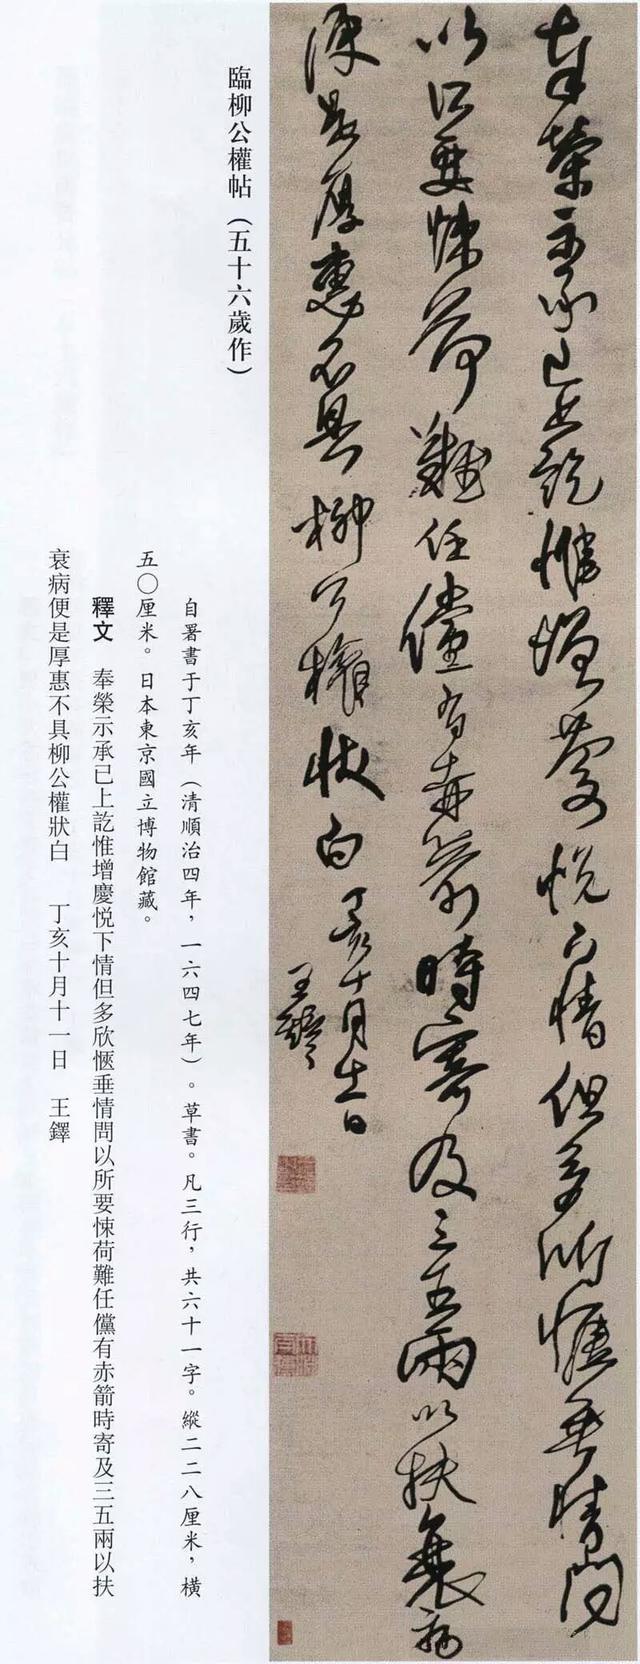 奉榮示承已上訖惟增慶悦下情但多欣愜垂情問
以所要悚荷難任儻有赤箭時寄及三五兩以扶衰病
便是厚惠不具柳公權狀白 丁亥十月十一日
王鐸
臨柳公權帖（五十六歲作）
自署書于丁亥年（清順治四年，一六四七年）。草書。凡三行，共六十一字。縱二二八厘米，橫
五〇厘米。日本東京國立博物館藏。
釋文 奉榮示承已上訖惟增慶悦下情但多欣愜垂情問以所要悚荷難任儻有赤箭時寄及三五兩以扶
衰病便是厚惠不具柳公權狀白 丁亥十月十一日 王鐸